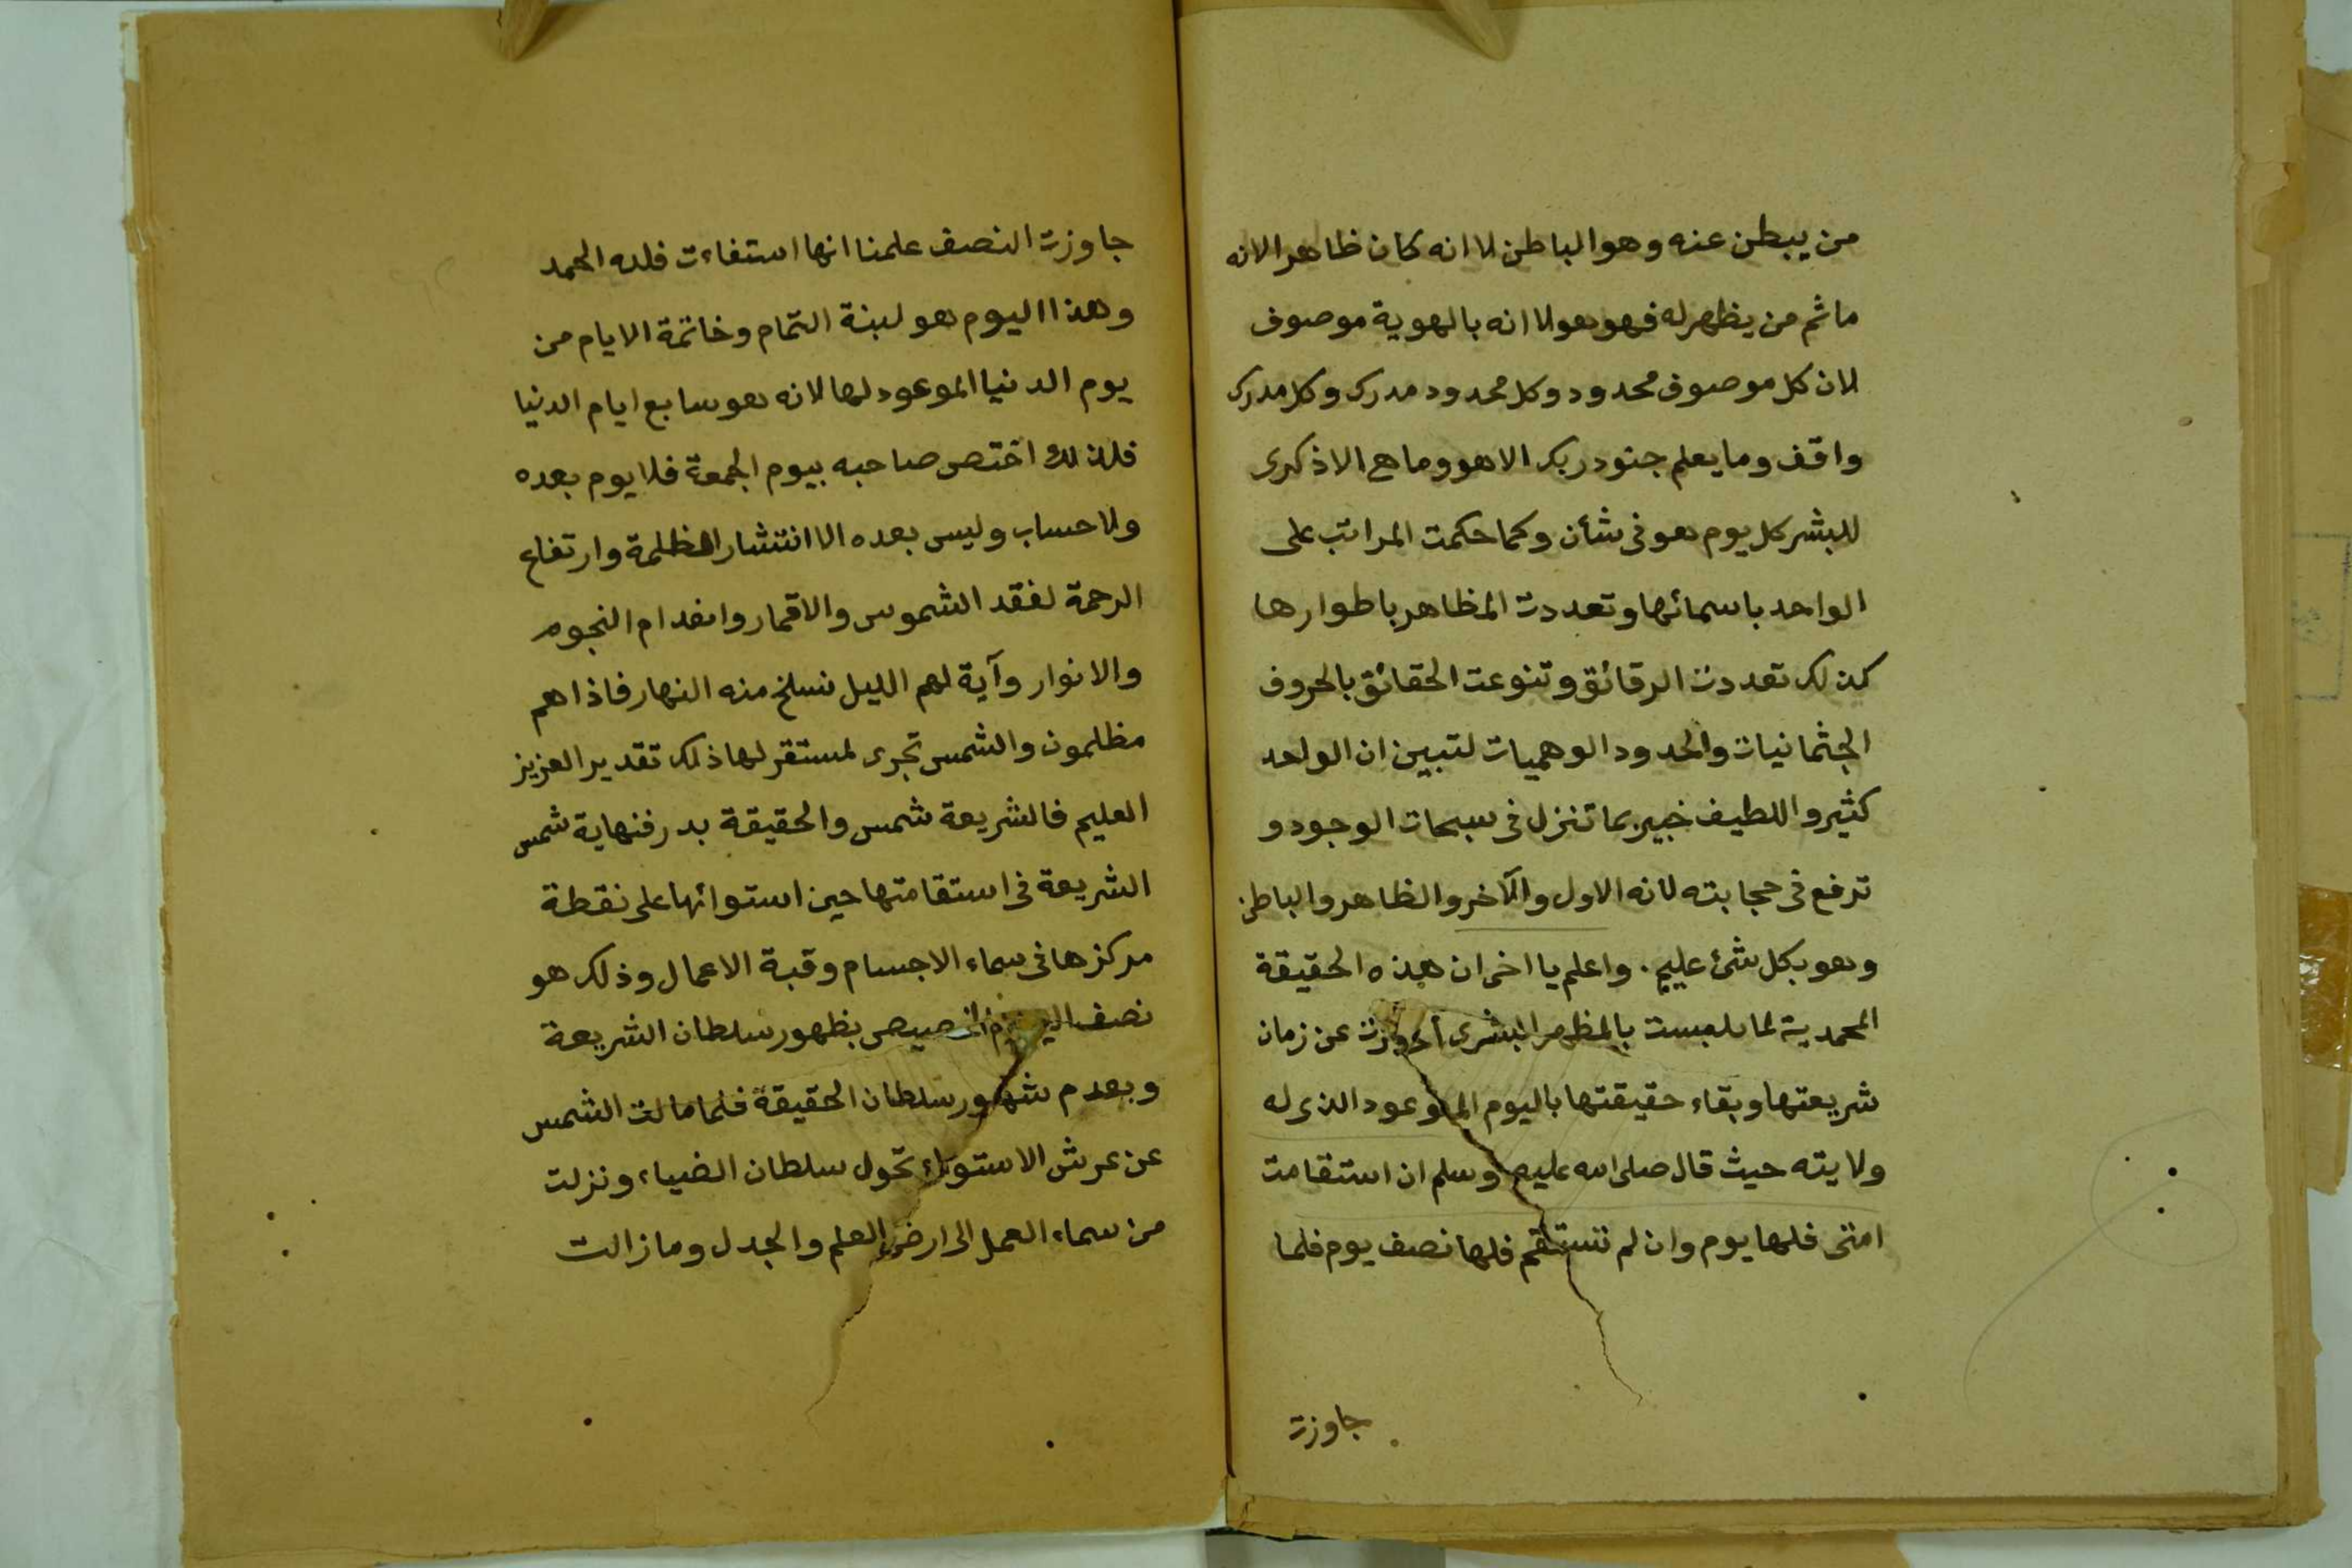 من يبطن عنه وهو الباطن لا انه كان ظاهرا لانه
ما ثم من يظهر له فهو هو لا انه بالهوية موصوف
لان كل موصوف محدود وكل محدود مدرك وكل مدرك
واقف وما يعلم جنود ربك الا هو وما هي الا ذكرى
للبشر كل يوم هو في شأن وكما حكمت المراتب على
الواحد باسمائها وتعددت المظاهر باطوارها
كذلك تعددت الرقائق وتنوعت الحقائق بالحروف
الجثمانيات والحدود الوهميات لتبين ان الواحد
كثير واللطيف خبير بما تنزل في سبحات الوجود و
ترفع في حجابته لانه الاول والآخر والظاهر والباطن
وهو بكل شئ عليم . واعلم يا اخى ان هذه الحقيقة
المحمدية لما تلبست بالمظهر البشرى عن زمان
شريعتها وبقاء حقيقتها باليوم الموعود الذى له
ولايته حيث قال صلى الله عليه وسلم ان استقامت
امتى فلها يوم وان لم تستقم فلها نصف يوم فلما
جاوزت
جاوزت النصف علمنا انها استفاءت فلله الحمد
وهذا اليوم هو لبنة التمام وخاتمة الايام من
يوم الدنيا الموعود لها لانه هو سابع ايام الدنيا
فلذلك اختص صاحبه بيوم الجمعة فلا يوم بعده
ولا حساب وليس بعده الا انتشار الظلمة وارتفاع
الرحمة لفقد الشموس والاقمار وانعدام النجوم
والانوار وآية لهم الليل نسلخ منه النهار فاذا هم
مظلمون والشمس تجرى لمستقر لها ذلك تقدير العزيز
العليم فالشريعة شمس والحقيقة بدر فنهاية شمس
الشريعة في استقامتها حين استوائها على نقطة
مركزها في سماء الاجسام وقبة الاعمال وذلك هو
نصف بظهور سلطان الشريعة
وبعدم ظهور سلطان الحقيقة فلما مالت الشمس
عن عرش الاستواء تحول سلطان الضياء ونزلت
من سماء العمل الى ارض العلم والجدل وما زالت